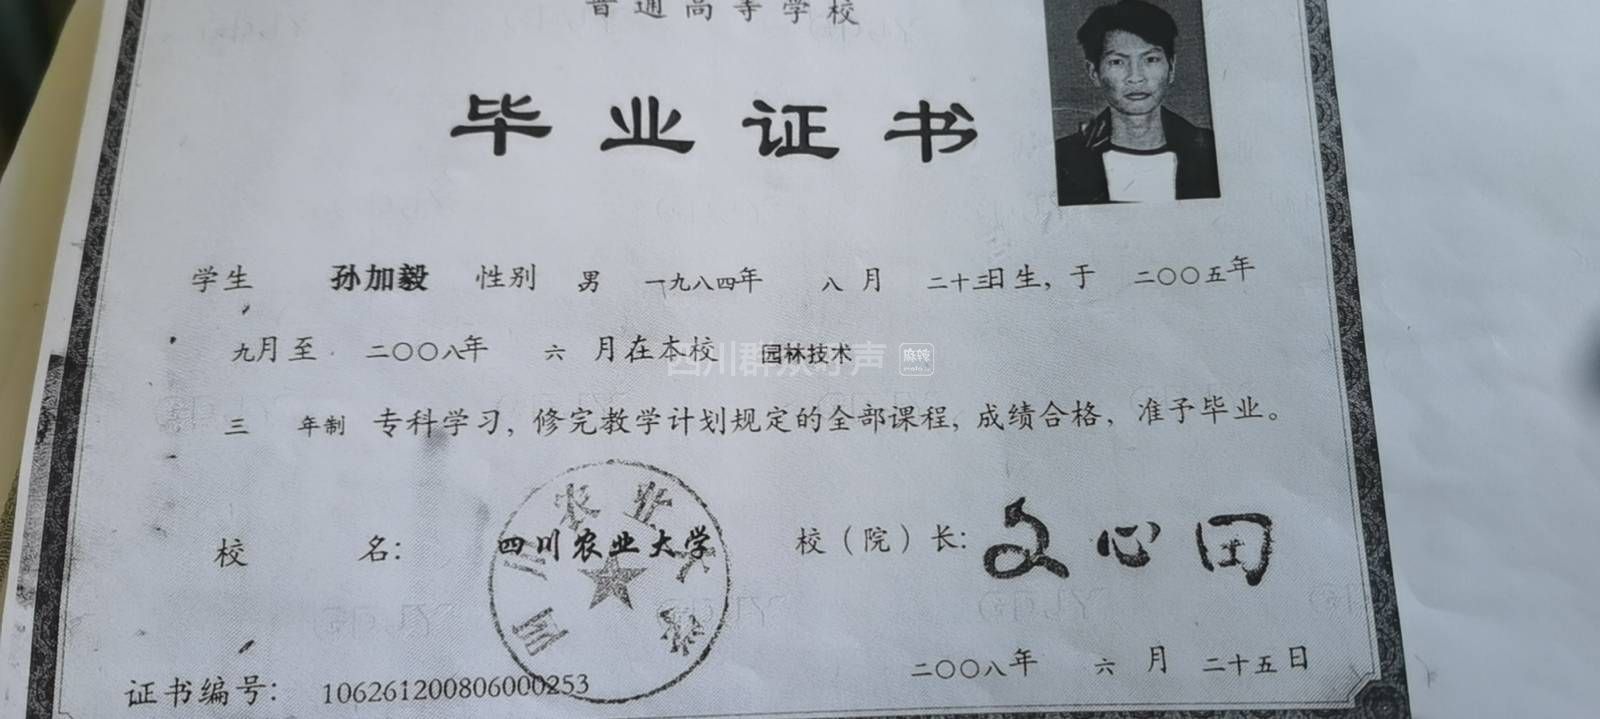 普通高等学校
毕业证书
学生 孙加毅 性别 男 一九八四年 八月 二十三日生，于 二〇〇五年
九月至 二〇〇八年 六 月在本校 园林技术
三 年制 专科学习，修完教学计划规定的全部课程，成绩合格，准予毕业。
四川群众呼声 麻辣 mala.cn
校 名： 四川农业大学 校（院）长： 文心田
四川农业大学
二〇〇八年 六 月 二十五日
证书编号： 106261200806000253